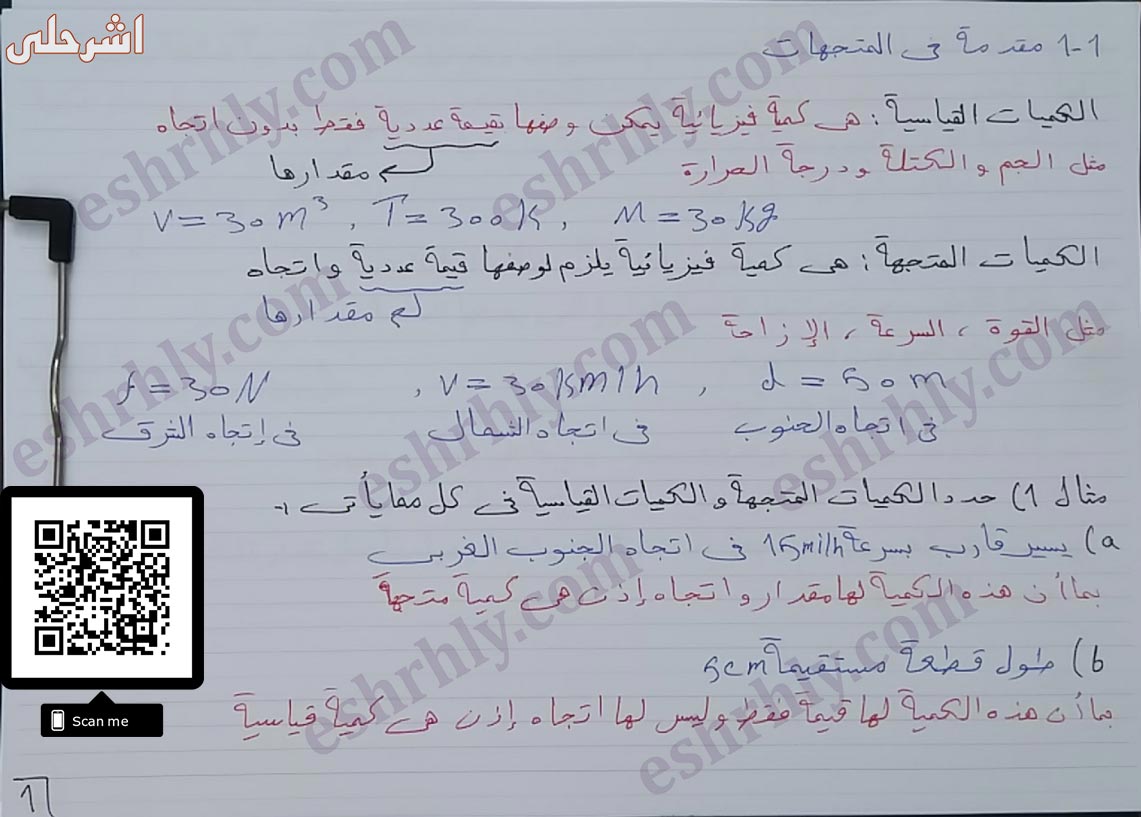 اشرحلى
1-1 مقدمة فى المتجهات
الكميات القياسية : هى كمية فيزيائية يمكن وصفها بقيمة عددية فقط بدون اتجاه
مقدارها
مثل الحجم والكتلة ودرجة الحرارة
V = 30 m³ , T = 300 K , M = 30 Kg
الكميات المتجهة : هى كمية فيزيائية يلزم لوصفها قيمة عددية واتجاه
مقدارها
مثل القوة ، السرعة ، الإزاحة
f = 30 N , V = 30 Km/h , d = 50 m
فى اتجاه الجنوب
فى اتجاه الشمال
فى إتجاه الشرق
مثال 1) حدد الكميات المتجهة والكميات القياسية فى كل مما يأتى :-
a) يسير قارب بسرعة 15mi/h فى اتجاه الجنوب الغربى
بما أن هذه الكمية لها مقدار واتجاه إذن هى كمية متجهة
b) طول قطعة مستقيمة 5cm
بما أن هذه الكمية لها قيمة فقط وليس لها اتجاه إذن هى كمية قياسية
Scan me
1
eshrhly.com
eshrhly.com
eshrhly.com
eshrhly.com
eshrhly.com
eshrhly.com
eshrhly.com